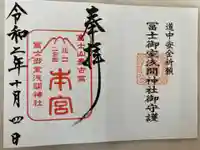 道中安全祈願
冨士御室浅間神社御守護
奉拝
冨士山最古宮
本宮
冨士御室浅間神社
令和二年十月四日